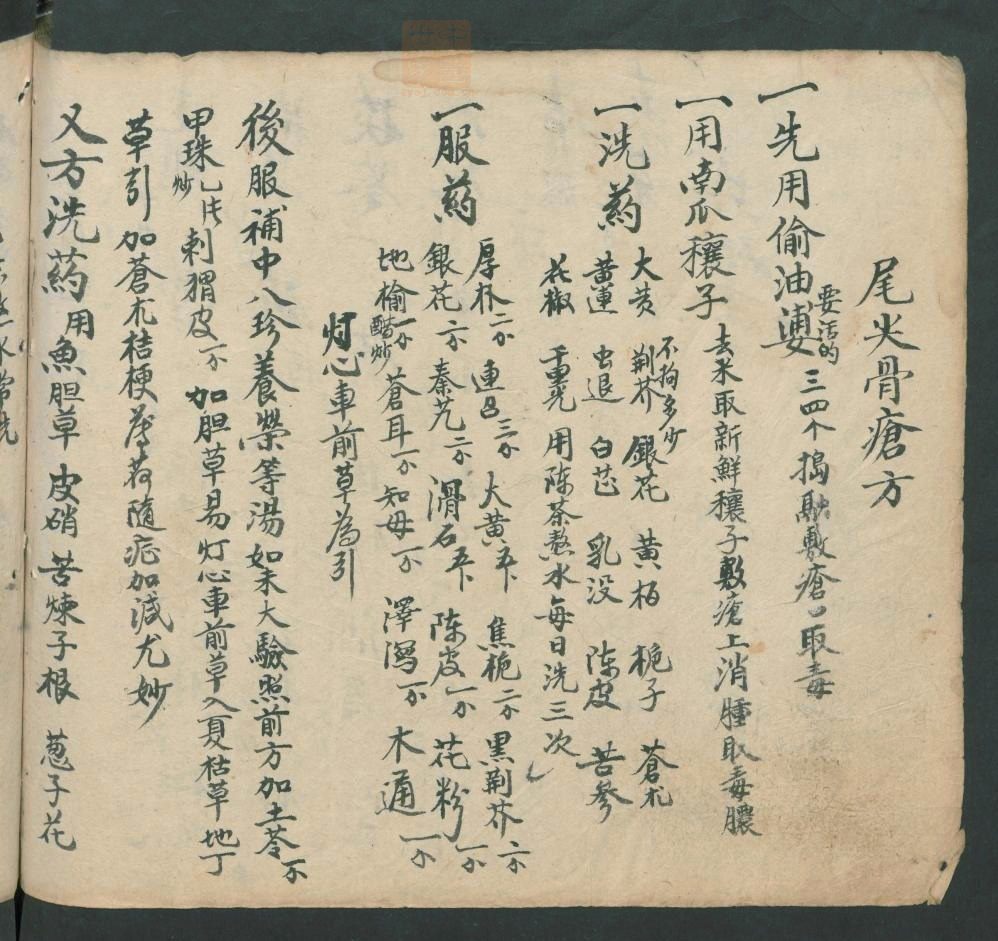 尾尖骨瘡方
一先用偷油婆要活的三四个搗融敷瘡口取毒
一用南瓜穰子去米取新鮮穰子敷瘡上消腫取毒膿
一洗葯
大黄 荆芥 銀花 黄柏 梔子 蒼朮
不拘多少
黄連 虫退 白芷 乳没 陈皮 苦參
花椒 千里光 用陈茶熬水每日洗三次
一服葯
厚朴二分 連召三分 大黄五卜 焦梔二分 黑荆芥二分
銀花二分 秦艽二分 滑石五卜 陈皮一分 花粉一分
地榆一分醋炒 蒼耳一分 知母一分 澤瀉一分 木通一分
灯心車前草為引
後服補中八珍養榮等湯如未大驗照前方加土苓一分
甲珠炒乙片刺猬皮一分 加胆草易灯心車前草入夏枯草地丁
草引加蒼朮桔梗薄荷隨症加減尤妙
又方洗葯用魚胆草 皮硝 苦煉子根 葱子花